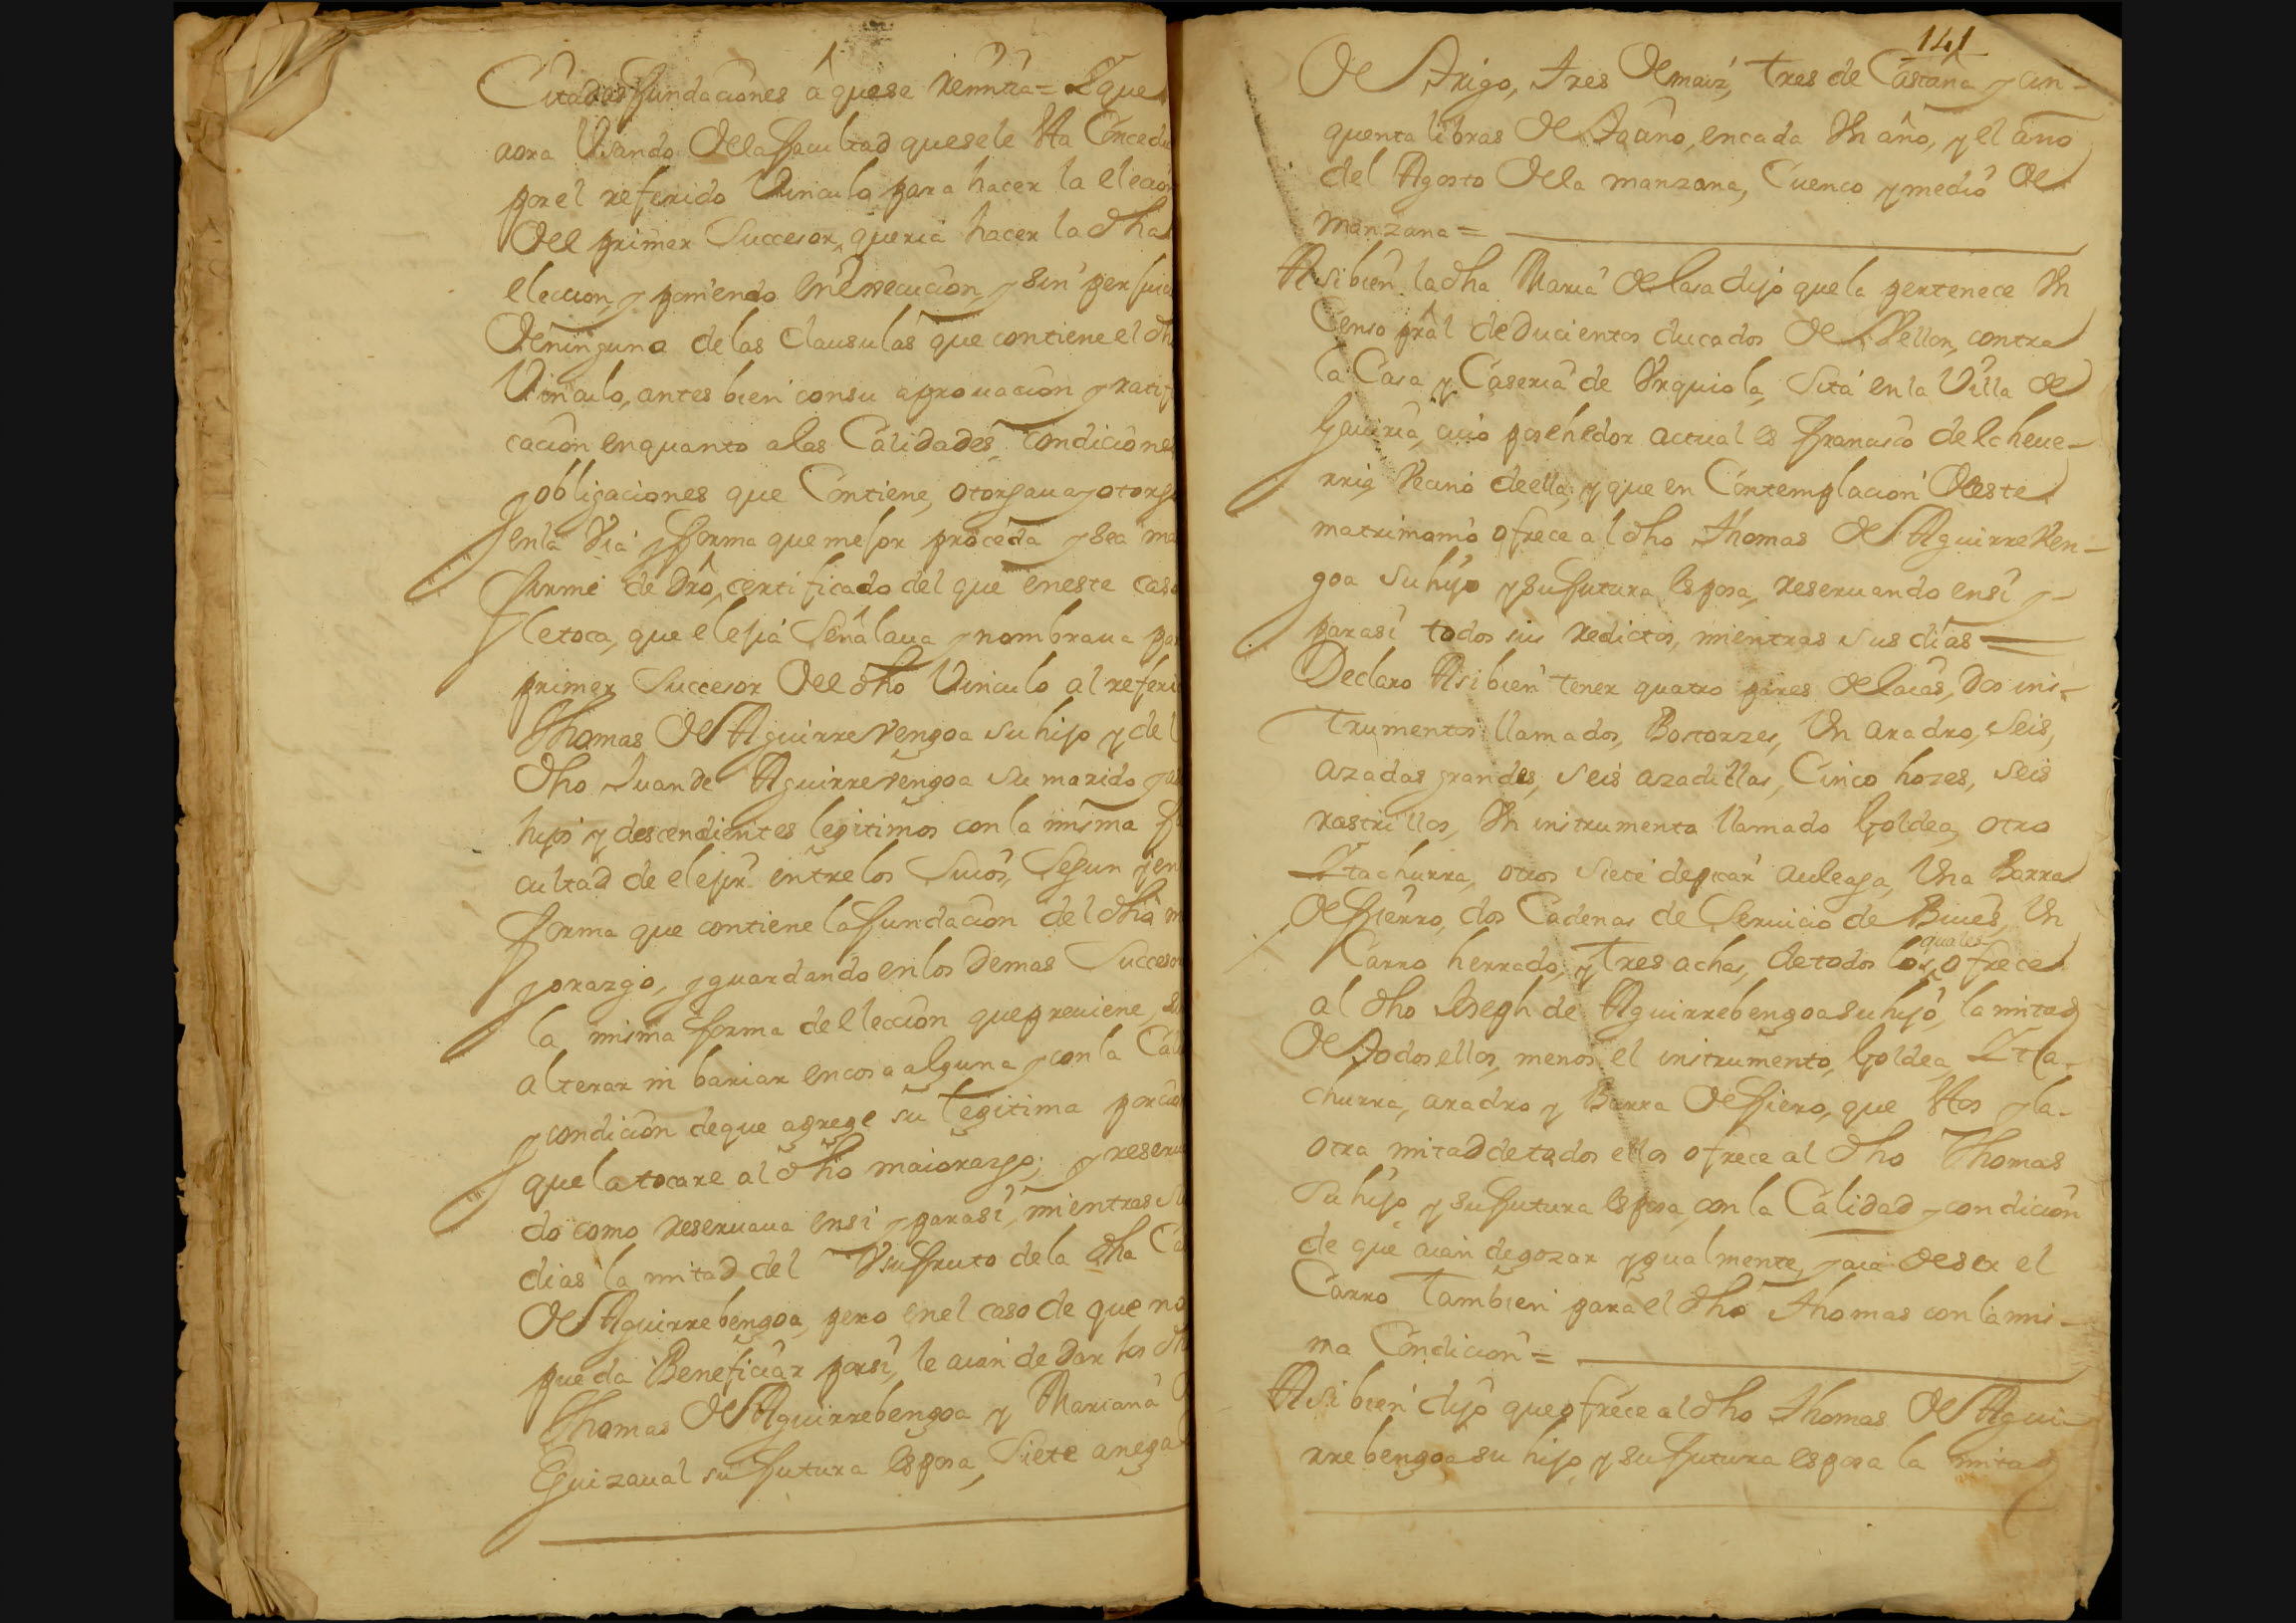 Citadas fundaciones â que se remitía = Y que
aora Usando de la facultad que se le Ha Concedi
por el referido Vinculo para hacer la eleción
del primer Succesor, queria hacer la dha
eleccion, y poniendo en execución, y sin perjuici
de ninguna de las Clausulas que contiene el dh
Vinculo, antes bien con su aprouacion y ratifi
cación en quanto a las Calidades, condicione
y obligaciones que Contiene, otorgaua y otorg
en la via y forma que mejor proceda y sea ma
firme de dro, certificado del que en este caso
le toca, que elejiá Señalaua y nombraua por
primer Succesor del dho Vinculo al referi
Thomas de Aguirrevengoa su hijo y de l
dho Juan de Aguirrevengoa su marido y a
hijos y descendientes legitimos con la misma fa
cultad de elejir entre los Suios, Segun y en
forma que contiene la fundacion del dho m
yorazgo, y guardando en los demas Succesor
la misma forma de lleccion que preuiene, si
alterar ni bariar en cosa alguna y con la Cali
y condición de que agrege su legitima porcio
que la tocare al dho maiorazgo; y reseru
do como reseruaua en si y para si, mientras su
dias la mitad del Usufruto de la dha Ca
de Aguirrebengoa, pero en el caso de que no
pueda Beneficiar por si, le aian de dar los dh
Thomas de Aguirrebengoa y Mariana
Eguizaual su futura esposa, Siete anega
141
de Trigo, tres de maiz, tres de Castaña y cin-
quenta libras de Tocino, en cada Un año, y el año
del Agosto de la manzana, Cuenco y medio de
manzana =
Asi bien la dha Maria de lasa dijo que la pertenece Un
Censo pral de ducientos ducados de Vellon, contra
la Casa y Caseria de Urquiola, Sita en la Villa de
Gauiria, cuio posehedor actual es francisco de Echeue-
rria Vecino de ella, y que en Contemplacion de este
matrimonio ofrece al dho Thomas de Aguirreven-
goa Su hijo y su futura esposa, reseruando en si y
para si todos sus redictos, mientras sus dias =
Declaro Asi bien tener quatro pares de laias, dos ins-
trumentos llamados, Bostorzes, Un aradro, Seis,
azadas grandes, Seis azadillas, Cinco hozes, seis
rastrillos, Un instrumento llamado Goldea, otro
Ytachurra, otros Siete de picar auleaga, Una Barra
de fierro, dos Cadenas de Seruicio de Bues, Un
Carro herrado, y Tres achas, de todos los quales ofrece
al dho Joseph de Aguirrebengoa su hijo, la mitad
de todos ellos, menos el instrumento, Goldea, Yta-
churra, aradro y Barra de fiero, que Estos y la
otra mitad de todos ellos ofrece al dho Thomas
Su hijo y su futura esposa, con la Calidad y condicion
de que aian de gozar ygualmente, y aia de ser el
Carro Tambien para el dho Thomas con la mis-
ma Condicion =
Asi bien dijo que ofrece al dho Thomas de Agui-
rrebengoa su hijo, y su futura esposa la mitad